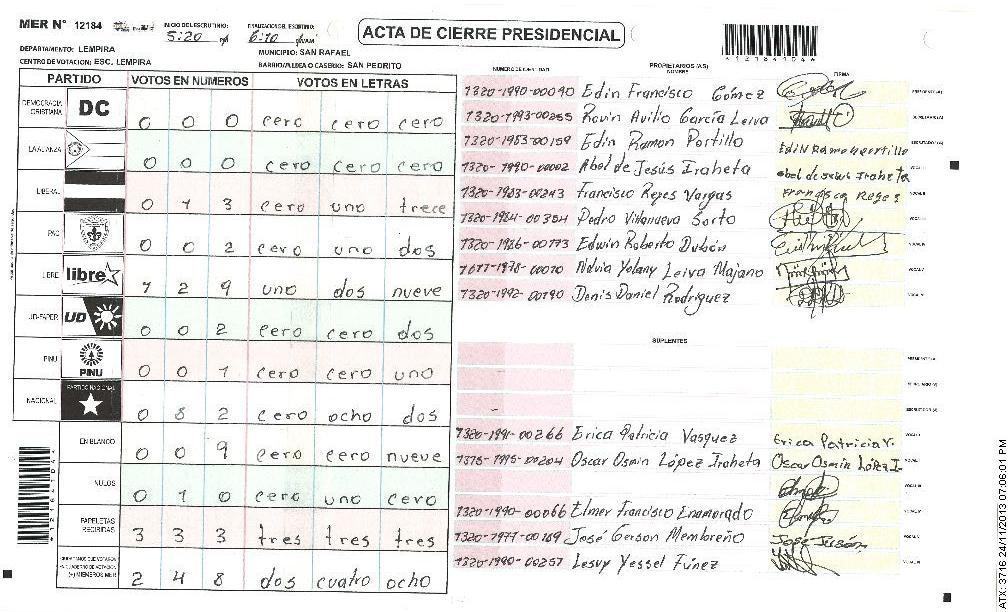 MER N° 12184
INICIO DEL ESCRUTINIO: 5:20
FINALIZACION DEL ESCRUTINIO: 6:10
ACTA DE CIERRE PRESIDENCIAL
*12184104*
DEPARTAMENTO: LEMPIRA
MUNICIPIO: SAN RAFAEL
CENTRO DE VOTACION: ESC. LEMPIRA
BARRIO/ALDEA O CASERIO: SAN PEDRITO
PARTIDO VOTOS EN NUMEROS VOTOS EN LETRAS
DEMOCRACIA CRISTIANA DC 0 0 0 cero cero cero
LA ALIANZA 0 0 0 cero cero cero
LIBERAL 0 1 3 cero uno trece
PAC 0 0 2 cero uno dos
LIBRE libre 1 2 9 uno dos nueve
UD-FAPER UD 0 0 2 cero cero dos
PINU PINU 0 0 1 cero cero uno
NACIONAL PARTIDO NACIONAL 0 8 2 cero ocho dos
EN BLANCO 0 0 9 cero cero nueve
NULOS 0 1 0 cero uno cero
PAPELETAS RECIBIDAS 3 3 3 tres tres tres
CIUDADANOS QUE VOTARON
(+) MIEMBROS MER 2 4 8 dos cuatro ocho
NUMERO DE IDENTIDAD PROPIETARIOS (AS) NOMBRE FIRMA
1320-1990-00090 Edin Francisco Gómez
1320-1993-00265 Rovin Avilio García Leiva
1320-1983-00159 Edin Ramon Portillo Edin Ramon portillo
1320-1990-00002 Abel de Jesús Iraheta abel de Jesus Iraheta
1320-1983-00243 Francisco Reyes Vargas Francisco Reyes
1320-1984-00304 Pedro Villanueva Sorto
1320-1986-00173 Edwin Roberto Dubón
1978-00070 Yolany Leiva Majano
1320-1992-00190 Denis Daniel Rodriguez
SUPLENTES
1320-1991-00266 Erica Patricia Vasquez Erica Patricia V.
1995-00204 Oscar Osmin López Iraheta Oscar Osmin López I.
1320-1990-00066 Elmer Francisco Enamorado
1320-1977-00169 José Gerson Membreño
1320-1990-00257 Lesvy Yessel Fúnez
ATX: 3716 24/11/2013 07:06:01 PM